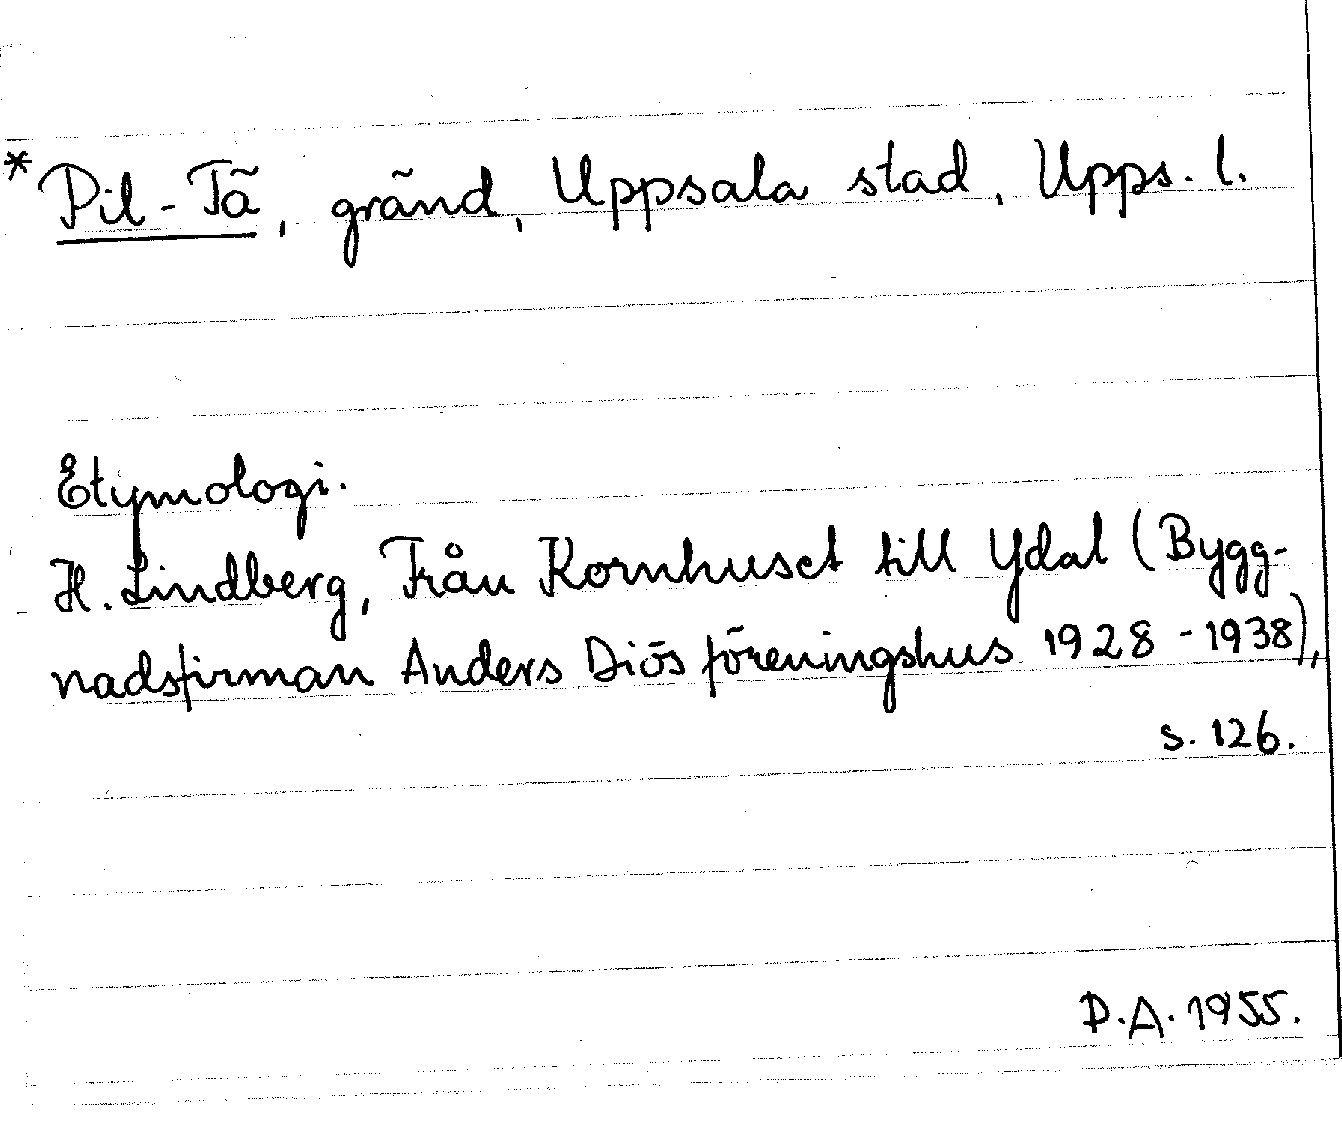 * Pil-Tä, gränd, Uppsala stad, Upps. l.
Etymologi.
H. Lindberg, Från Kornhuset till Ydal (Bygg-
nadsfirman Anders Diös föreningshus 1928-1938),
s. 126.
D.A. 1955.